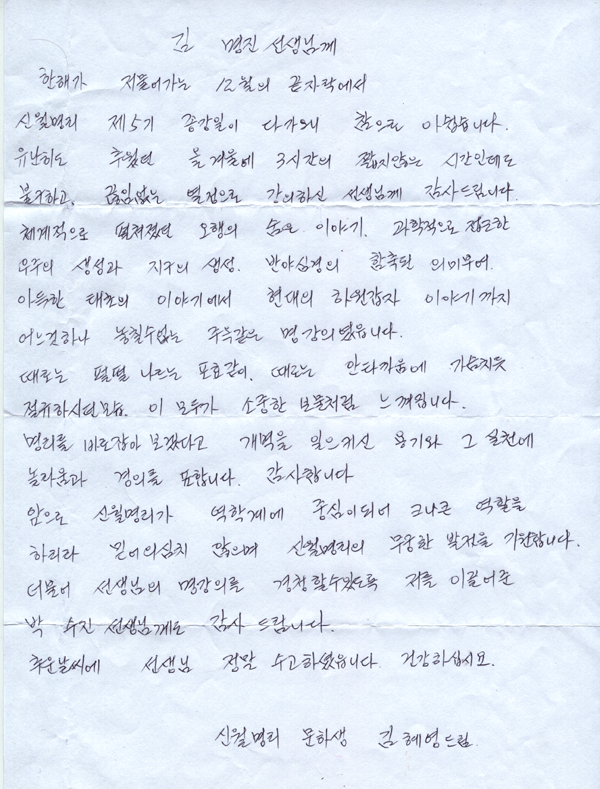 김 명진 선생님께
한해가 저물어가는 12월의 끝자락에서
신월명리 제5기 종강일이 다가오니 참으로 아쉽습니다.
유난히도 추웠던 올겨울에 3시간의 짧지않은 시간인데도
불구하고, 끊임없는 열정으로 강의하신 선생님께 감사드립니다.
체계적으로 펼쳐졌던 오행의 숨은 이야기, 과학적으로 접근한
우주의 생성과 지구의 생성. 반야심경의 함축된 의미부여.
아득한 태초의 이야기에서 현대의 하원갑자 이야기까지
어느것하나 놓칠수없는 주옥같은 명강의였읍니다.
때로는 펄펄 나르는 포효같이, 때로는 안타까움에 가슴치듯
절규하시던모습. 이 모두가 소중한 보물처럼 느껴집니다.
명리를 바로잡아 보겠다고 개벽을 일으키신 용기와 그 실천에
놀라움과 경의를 표합니다. 감사합니다
앞으로 신월명리가 역학계에 중심이되어 크나큰 역할을
하리라 믿어의심치 않으며 신월명리의 무궁한 발전을 기원합니다.
더불어 선생님의 명강의를 경청할수있도록 저를 이끌어준
박 수진 선생님께도 감사 드립니다.
추운날씨에 선생님 정말 수고하셨읍니다. 건강하십시요.
신월명리 문하생 김 혜영드림.